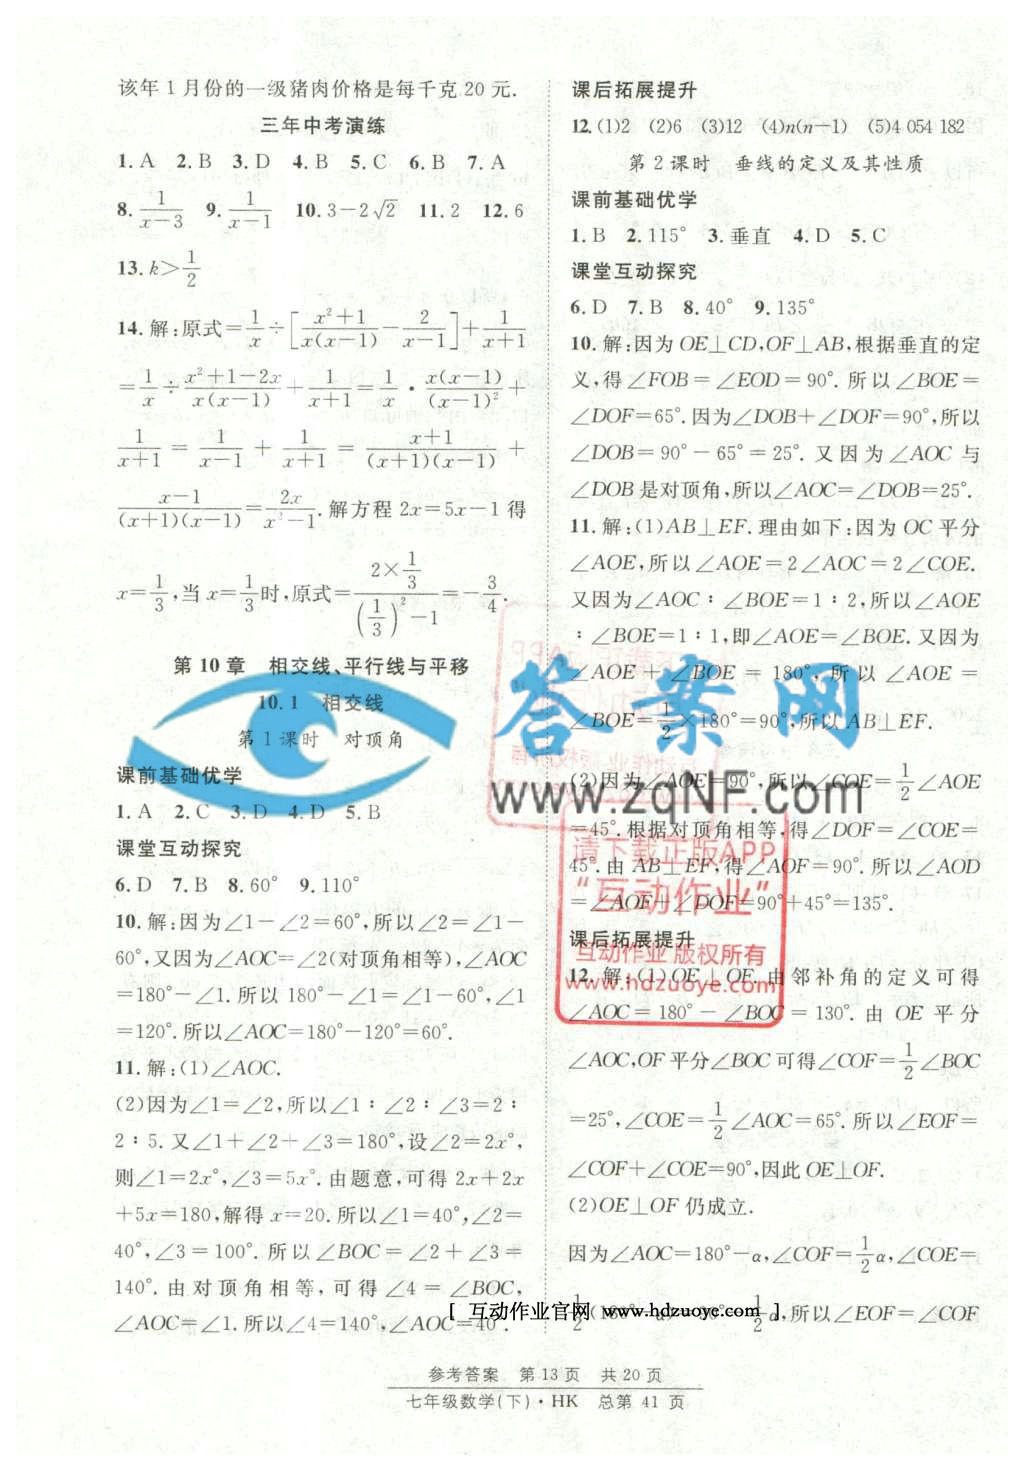 该年1月份的一级猪肉价格是每千克20元.
三年中考演练
1. A 2. B 3. D 4. B 5. C 6. B 7. A
8. 1/(x-3) 9. 1/(x-1) 10. 3-2√2 11. 2 12. 6
13. k>1/2
14. 解:原式=1/x÷[(x²+1)/(x(x-1))-2/(x-1)]+1/(x+1)
=1/x÷(x²+1-2x)/(x(x-1))+1/(x+1)=1/x·(x(x-1))/(x-1)²+
1/(x+1)=1/(x-1)+1/(x+1)=(x+1)/((x+1)(x-1))+
(x-1)/((x+1)(x-1))=2x/(x²-1).解方程2x=5x-1得
x=1/3,当x=1/3时,原式=(2×1/3)/((1/3)²-1)=-3/4.
第10章 相交线、平行线与平移
10.1 相交线
第1课时 对顶角
课前基础优学
1. A 2. C 3. D 4. D 5. B
课堂互动探究
6. D 7. B 8. 60° 9. 110°
10. 解:因为∠1-∠2=60°,所以∠2=∠1-
60°,又因为∠AOC=∠2(对顶角相等),∠AOC
=180°-∠1.所以180°-∠1=∠1-60°,∠1
=120°.所以∠AOC=180°-120°=60°.
11. 解:(1)∠AOC.
(2)因为∠1=∠2,所以∠1∶∠2∶∠3=2∶
2∶5.又∠1+∠2+∠3=180°,设∠2=2x°,
则∠1=2x°,∠3=5x°.由题意,可得2x+2x
+5x=180,解得x=20.所以∠1=40°,∠2=
40°,∠3=100°.所以∠BOC=∠2+∠3=
140°.由对顶角相等,可得∠4=∠BOC,
∠AOC=∠1.所以∠4=140°,∠AOC=40°.
课后拓展提升
12. (1)2 (2)6 (3)12 (4)n(n-1) (5)4 054 182
第2课时 垂线的定义及其性质
课前基础优学
1. B 2. 115° 3. 垂直 4. D 5. C
课堂互动探究
6. D 7. B 8. 40° 9. 135°
10. 解:因为OE⊥CD,OF⊥AB,根据垂直的定
义,得∠FOB=∠EOD=90°.所以∠BOE=
∠DOF=65°.因为∠DOB+∠DOF=90°,所以
∠DOB=90°-65°=25°.又因为∠AOC与
∠DOB是对顶角,所以∠AOC=∠DOB=25°.
11. 解:(1)AB⊥EF.理由如下:因为OC平分
∠AOE,所以∠AOE=2∠AOC=2∠COE.
又因为∠AOC∶∠BOE=1∶2,所以∠AOE
∶∠BOE=1∶1,即∠AOE=∠BOE.又因为
∠AOE+∠BOE=180°,所以∠AOE=
∠BOE=1/2×180°=90°,所以AB⊥EF.
(2)因为∠AOE=90°,所以∠COE=1/2∠AOE
=45°.根据对顶角相等,得∠DOF=∠COE=
45°.由AB⊥EF,得∠AOF=90°.所以∠AOD
=∠AOF+∠DOF=90°+45°=135°.
课后拓展提升
12. 解:(1)OE⊥OF.由邻补角的定义可得
∠AOC=180°-∠BOC=130°.由OE平分
∠AOC,OF平分∠BOC可得∠COF=1/2∠BOC
=25°,∠COE=1/2∠AOC=65°.所以∠EOF=
∠COF+∠COE=90°,因此OE⊥OF.
(2)OE⊥OF仍成立.
因为∠AOC=180°-α,∠COF=1/2α,∠COE=
1/2(180°-α)=90°-1/2α,所以∠EOF=∠COF
答案网
www.zqNF.com
请下载正版APP
“互动作业”
互动作业 版权所有
www.hdzuoye.com
[ 互动作业官网 www.hdzuoye.com ]
参考答案 第13页 共20页
七年级数学(下)·HK 总第41页